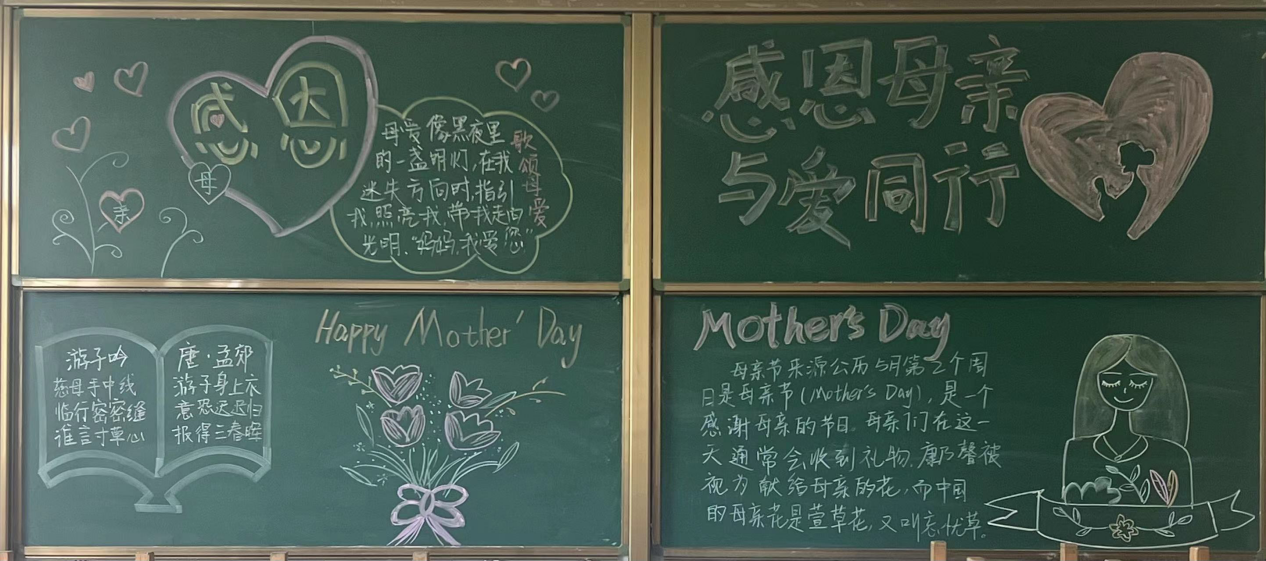 感恩
母
亲
歌颂母爱
母爱像黑夜里
的一盏明灯,在我
迷失方向时,指引
我,照亮我,带我走向
光明、“妈妈,我爱您”
感恩母亲
与爱同行
游子吟
慈母手中线
临行密密缝
谁言寸草心
唐·孟郊
游子身上衣
意恐迟迟归
报得三春晖
Happy Mother' Day
Mother's Day
母亲节来源公历5月第2个周
日是母亲节(Mother's Day),是一个
感谢母亲的节日。母亲们在这一
天通常会收到礼物、康乃馨被
视为献给母亲的花,而中国
的母亲花是萱草花,又叫忘忧草。